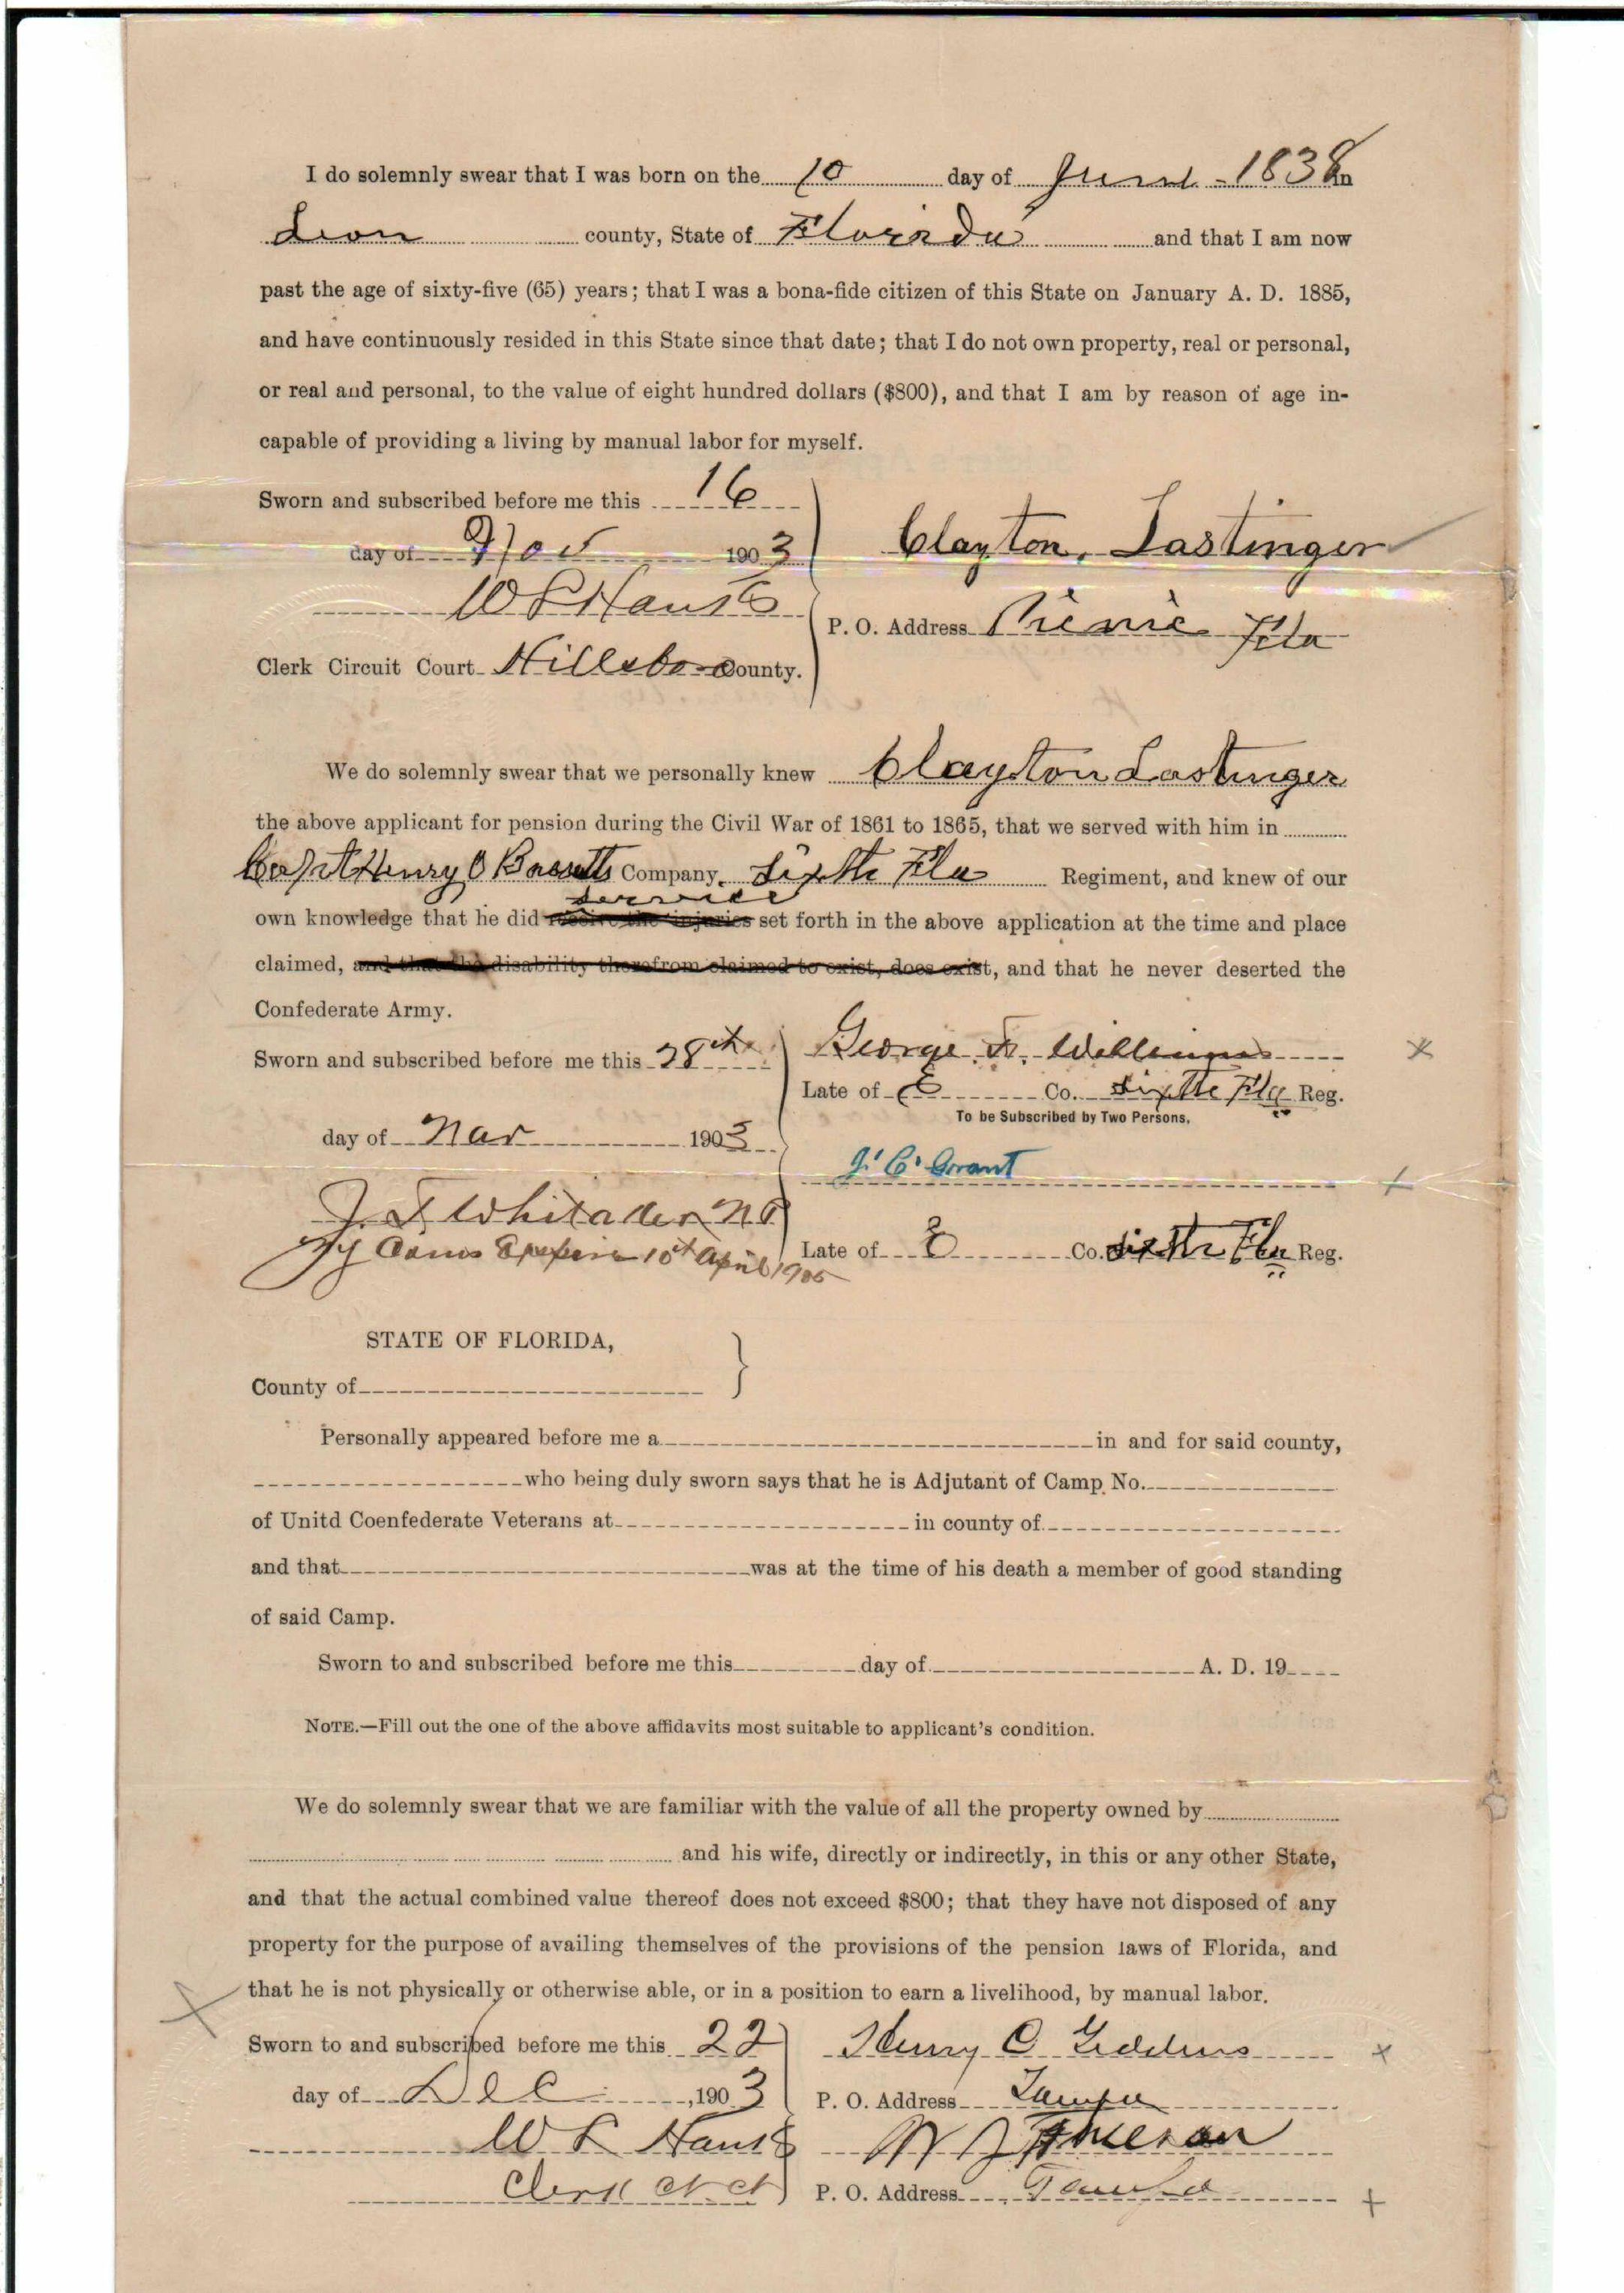 I do solemnly swear that I was born on the 10 day of June 1838 in
Leon county, State of Florida and that I am now
past the age of sixty-five (65) years; that I was a bona-fide citizen of this State on January A. D. 1885,
and have continuously resided in this State since that date; that I do not own property, real or personal,
or real and personal, to the value of eight hundred dollars ($800), and that I am by reason of age in-
capable of providing a living by manual labor for myself.
Sworn and subscribed before me this 16
day of Nov 1903
Clayton, Lastinger
W L Hanks
P. O. Address Picnic Fla
Clerk Circuit Court Hillsboro County.
We do solemnly swear that we personally knew Clayton Lastinger
the above applicant for pension during the Civil War of 1861 to 1865, that we served with him in
Capt Henry O Bassetts Company, Sixth Fla Regiment, and knew of our
service
own knowledge that he did receive the injuries set forth in the above application at the time and place
claimed, and that the disability therefrom claimed to exist, does exist, and that he never deserted the
Confederate Army.
Sworn and subscribed before me this 28th
George F. Williams x
Late of E Co. Sixth Fla Reg.
To be Subscribed by Two Persons.
day of Nov 1903
J. C. Grant x
J. T. Whitaker N P
My Coms Expire 10th April 1905
Late of E Co. Sixth Fla Reg.
STATE OF FLORIDA,
County of
Personally appeared before me a in and for said county,
who being duly sworn says that he is Adjutant of Camp No.
of Unitd Coenfederate Veterans at in county of
and that was at the time of his death a member of good standing
of said Camp.
Sworn to and subscribed before me this day of A. D. 19
NOTE.—Fill out the one of the above affidavits most suitable to applicant's condition.
We do solemnly swear that we are familiar with the value of all the property owned by
and his wife, directly or indirectly, in this or any other State,
and that the actual combined value thereof does not exceed $800; that they have not disposed of any
property for the purpose of availing themselves of the provisions of the pension laws of Florida, and
that he is not physically or otherwise able, or in a position to earn a livelihood, by manual labor.
Sworn to and subscribed before me this 22
Henry C Giddens x
day of Dec , 1903
P. O. Address Tampa
W L Hanks
Clerk Ct Ct
P. O. Address Tampa